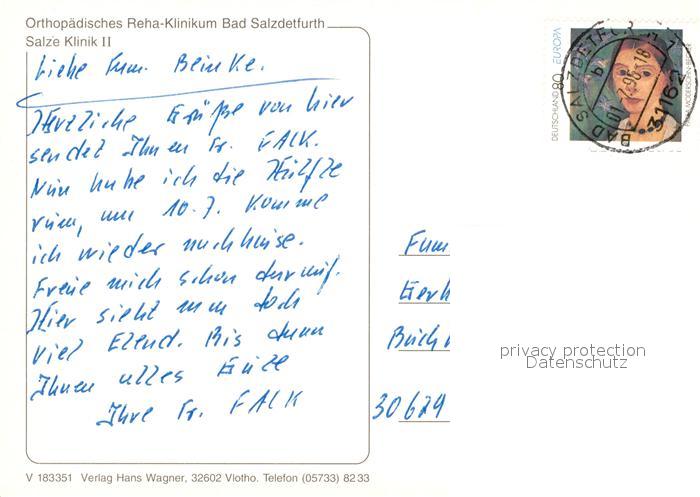 Orthopädisches Reha-Klinikum Bad Salzdetfurth
Salze Klinik II
Liebe Fam. Beinke.
Herzliche Grüße von hier
sendet Ihnen Fr. FALK.
Nun habe ich die Hälfte
rum, am 10.7. komme
ich wieder nachhause.
Freue mich schon darauf.
Hier sieht man doch
viel Elend. Bis dann
Ihnen alles Gute
Ihre Fr. FALK
V 183351 Verlag Hans Wagner, 32602 Vlotho. Telefon (05733) 8233
DEUTSCHLAND 80 EUROPA
BAD SALZDETFURTH
31162
Fam
Gerh
Buch
30629
privacy protection
Datenschutz